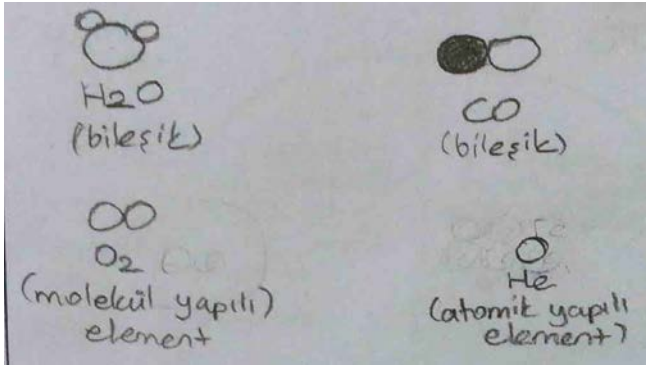 H2O
(bileşik)
CO
(bileşik)
O2
(molekül yapılı)
element
He
(atomik yapılı
element)